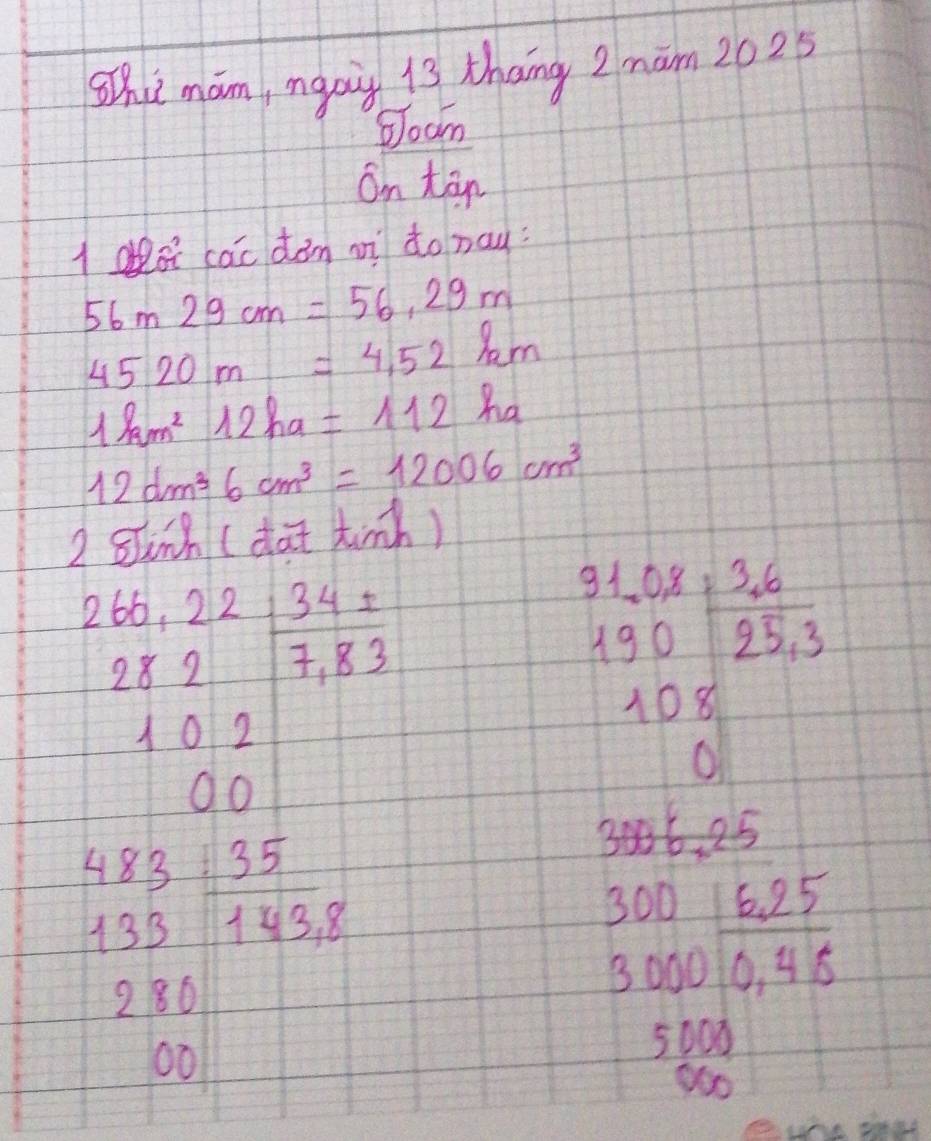 Thứ năm, ngày 13 tháng 2 năm 2025
Toán
Ôn tập
1 Đổi các đơn vị đo sau:
56m 29 cm = 56,29 m
4520 m = 4,52 km
1km² 12ha = 112 ha
12dm³ 6 cm³ = 12006 cm³
2 Tính (đặt tính)
266,22 34
282 7,83
102
00
91,0,8 3,6
190 25,3
108
0
483 35
133 143,8
280
00
300 6,25
300 6,25
3000 0,48
5000
000